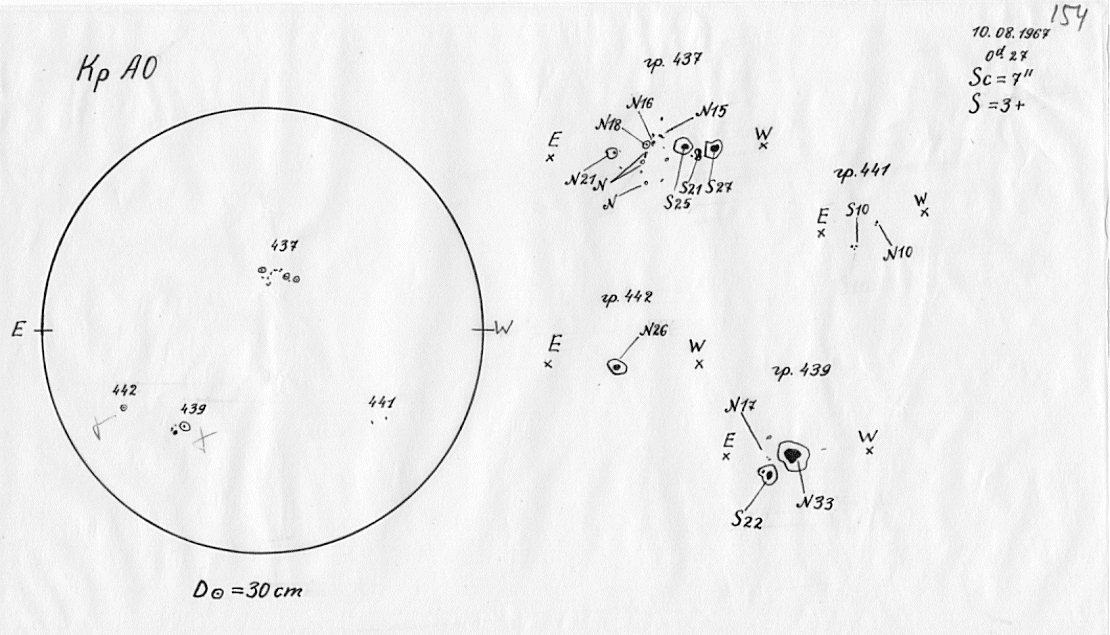 154
10.08.1967
0ᵈ 27
Sc = 7"
S = 3+
Кр АО
437
E
W
442
439
441
D⊙ = 30 cm
гр. 437
N16
N15
N18
E
W
N21
N
N
S25
S21
S27
гр. 441
E
S10
W
N10
гр. 442
E
N26
W
гр. 439
N17
E
W
S22
N33